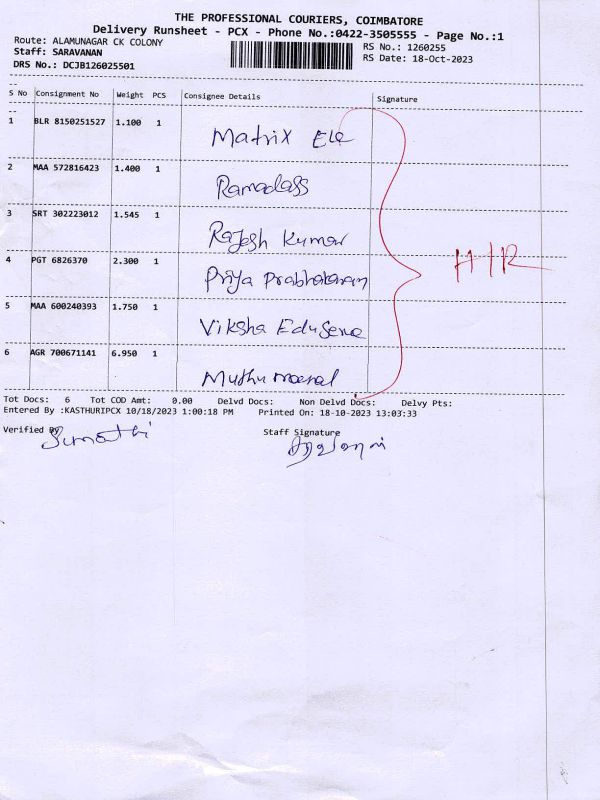 THE PROFESSIONAL COURIERS, COIMBATORE
Delivery Runsheet - PCX - Phone No.:0422-3505555 - Page No.:1
Route: ALAMUNAGAR CK COLONY RS No.: 1260255
Staff: SARAVANAN RS Date: 18-Oct-2023
DRS No.: DCJB126025501
S No Consignment No Weight PCS Consignee Details Signature
1 BLR 8150251527 1.100 1 Matrix Ele
2 MAA 572816423 1.400 1 Ramadass
3 SRT 302223012 1.545 1 Rajesh Kumar
4 PGT 6826370 2.300 1 Priya Prabhakaran
H/R
5 MAA 600240393 1.750 1 Viksha Eduserve
6 AGR 700671141 6.950 1
Tot Docs: 6 Tot COD Amt: 0.00 Delvd Docs: Non Delvd Docs: Delvy Pts:
Entered By :KASTHURIPCX 10/18/2023 1:00:18 PM Printed On: 18-10-2023 13:03:33
Verified By Staff Signature
Sumathi